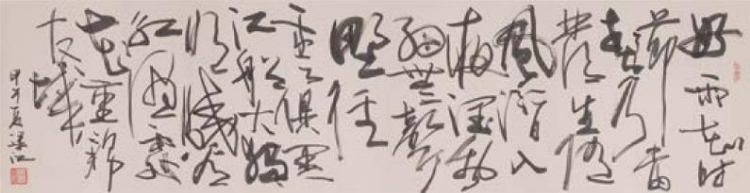 好雨知时
節當春乃
發生隨
風潛入
夜潤物
細無聲
野徑
雲俱黑
江船火獨
明曉看
紅濕處
花重錦
官城
甲午夏梁江